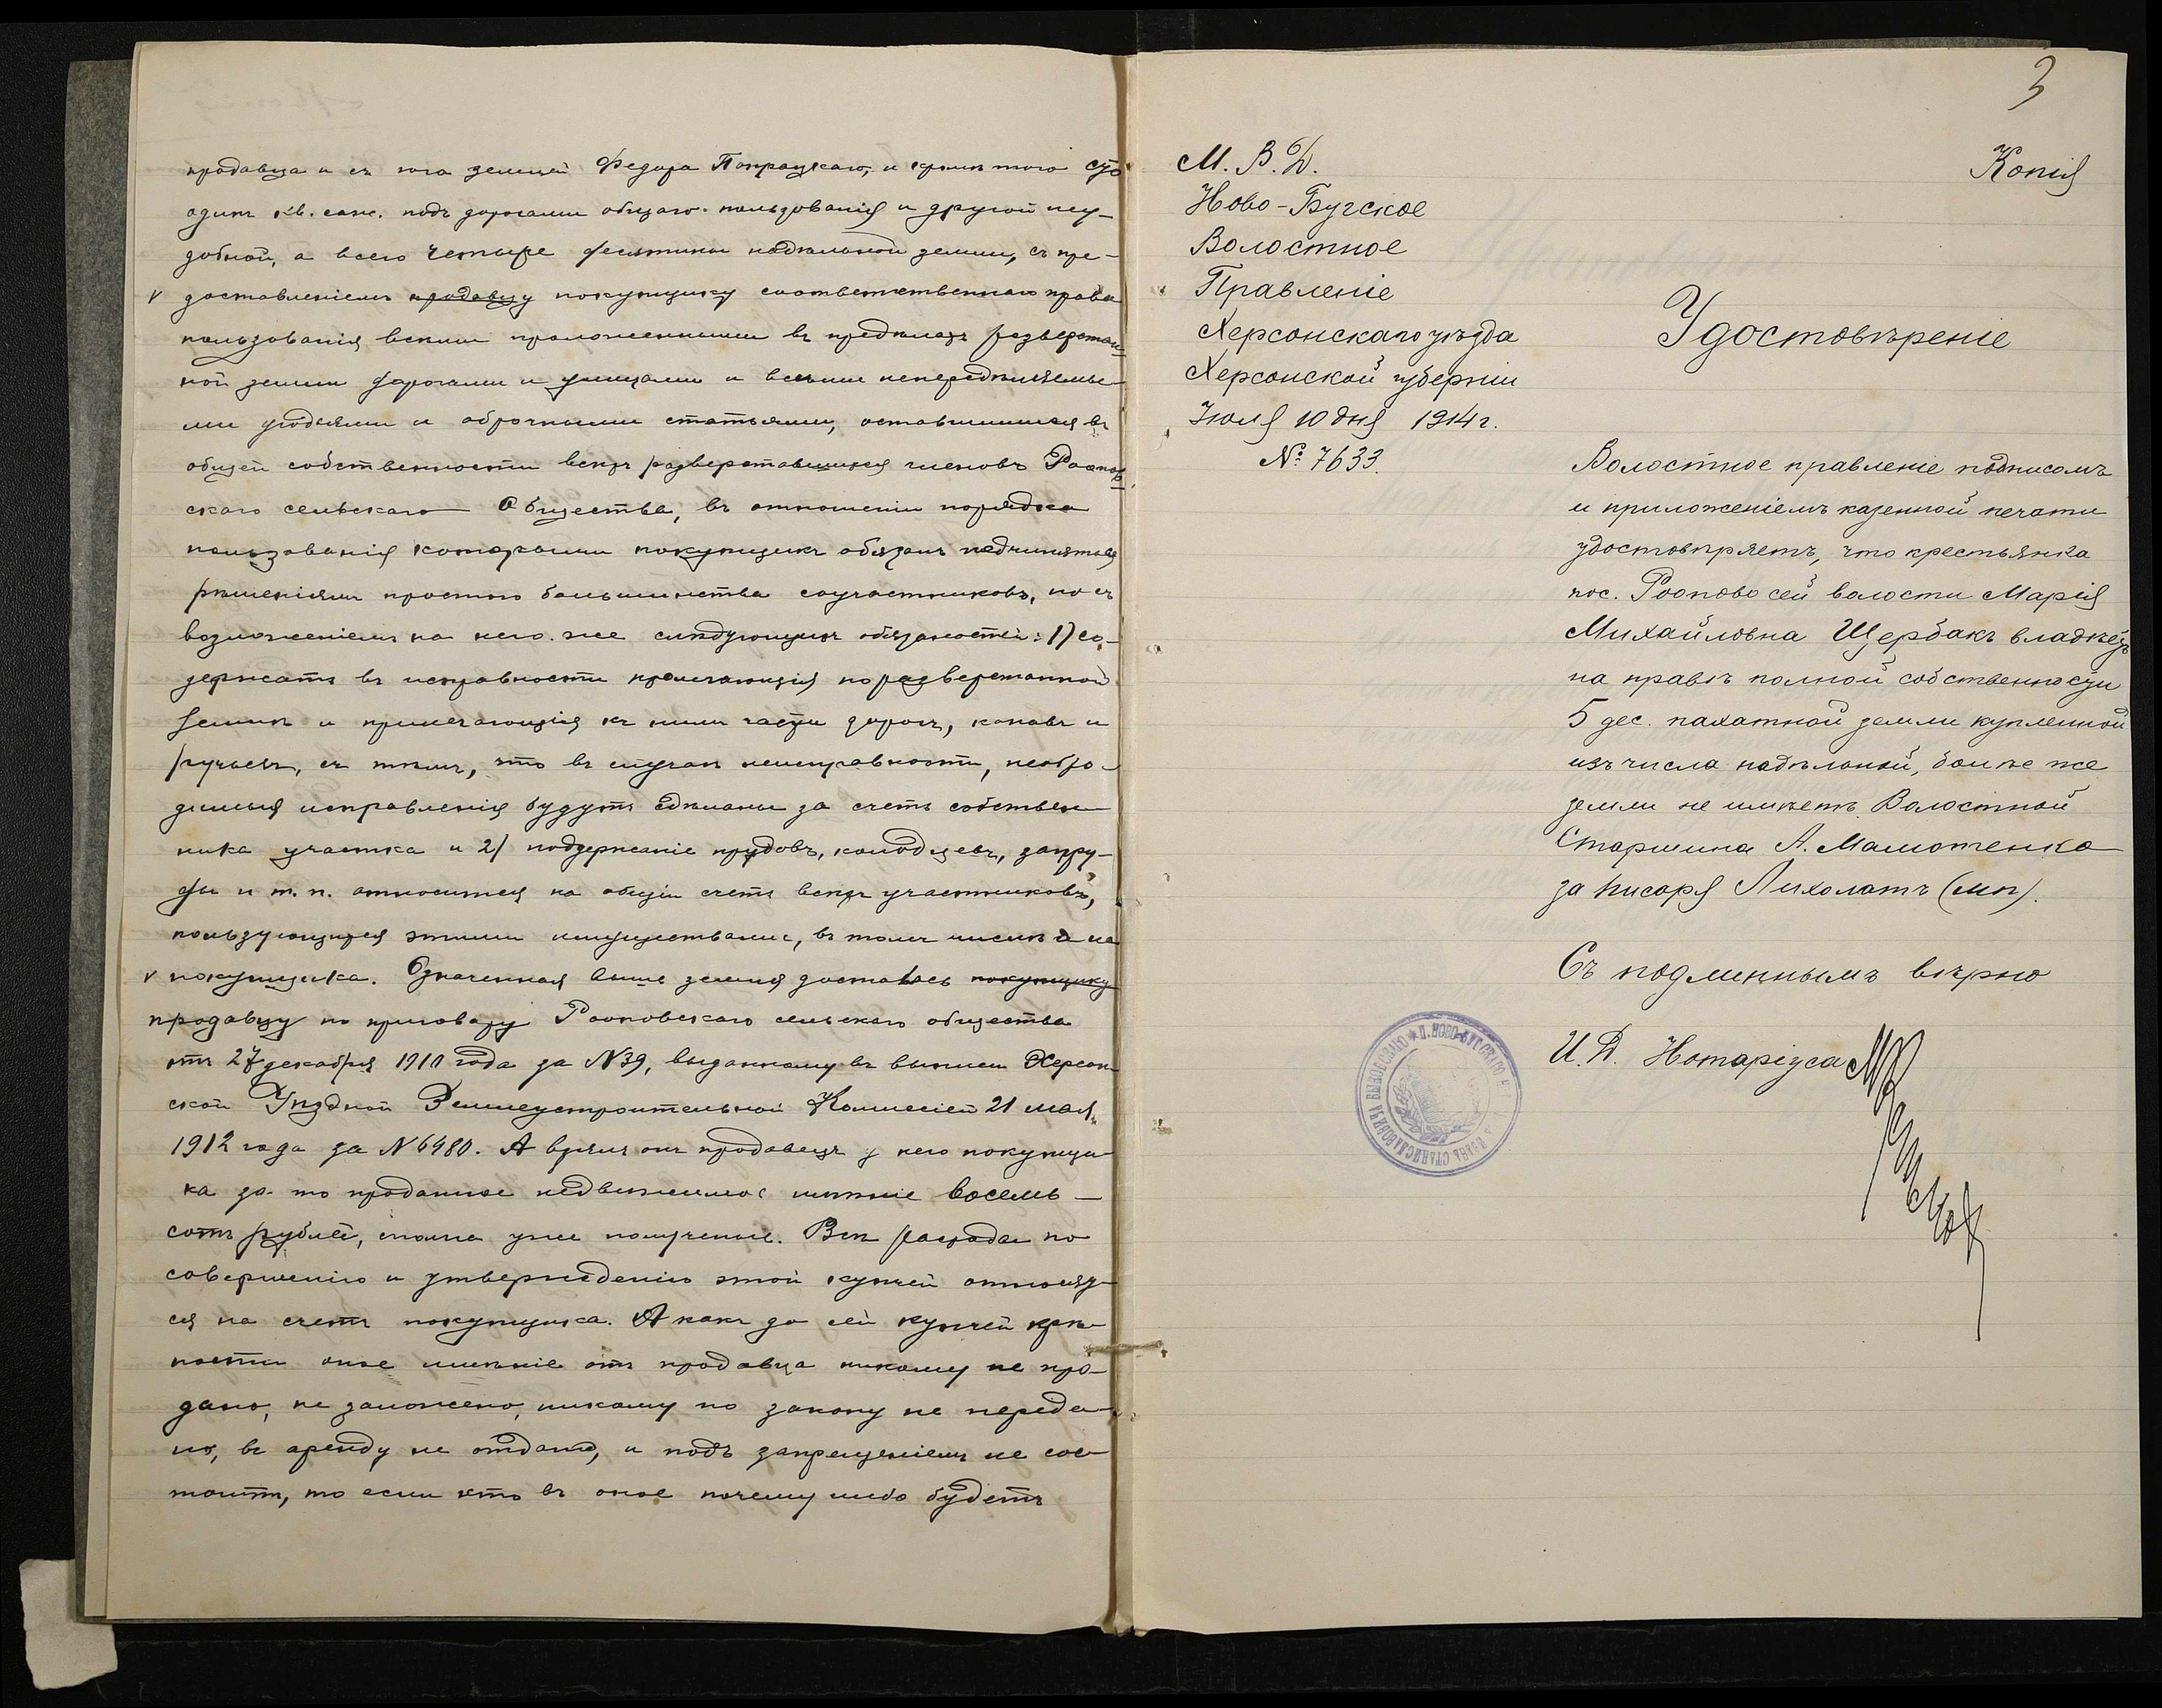 продавца и съ юга землей Федора Покрацкаго, и кромѣ того сто
одинъ кв. саж. подъ дорогами общаго пользованія и другой неу-
добной, а всего четыре десятины надѣльной земли, съ пре-
доставленіемъ продавцу покупщику соотвѣтственнаго права
пользованія всѣми проложенными въ предѣлахъ разверстан-
ной земли дорогами и улицами и всѣми непередѣляемы-
ми угодьями и оброчными статьями, оставшимися въ
общей собственности всѣхъ разверставшихся членовъ Роопов-
скаго сельскаго Общества, въ отношеніи порядка
пользованія которыми покупщикъ обязанъ подчиняться
рѣшеніямъ простого большинства соучастниковъ, но съ
возложеніемъ на него же слѣдующихъ обязаностей: 1) со-
держать въ исправности пролегающія по разверстанной
землѣ и прилегающія къ нимъ части дорогъ, канавъ и
ручьевъ, съ тѣмъ, что въ случаѣ неисправности, необхо-
димыя исправленія будутъ сдѣланы за счетъ собствен-
ника участка и 2) поддержаніе прудовъ, колодцевъ, запру-
ды и т. п. относится на общій счетъ всѣхъ участниковъ,
пользующихся этими имуществами, въ томъ числѣ и на
покупщика. Означенная выше земля досталась покупщику
продавцу по приговору Рооповскаго сельскаго общества
отъ 27 декабря 1911 года за N 39, выданному въ выписи Херсон-
ской Уѣздной Землеустроительной Коммисіей 21 мая
1912 года за N 6480. А взялъ онъ продавецъ у него покупщи-
ка за то проданное недвижимое имѣніе восемь-
сотъ рублей, сполна уже полученые. Всѣ расходы по
совершенію и утвержденію этой купчей относят-
ся на счетъ покупщика. А какъ до сей купчей крѣ-
пости оное имѣніе отъ продавца никому не про-
дано, не заложено, никому по закону не переда-
но, въ аренду не отдано, и подъ запрещеніемъ не сос-
тоитъ, то если кто въ оное почему либо будетъ
3
Копія
М. В. Д.
Ново-Бугское
Волостное
Правленіе
Херсонскаго уѣзда
Херсонской губерніи
Іюля 10 дня 1914 г.
№ 7633.
Удостовѣреніе
Волостное правленіе подписомъ
и приложеніемъ казенной печати
удостовѣряетъ, что крестьянка
пос. Роопово сей волости Марія
Михайловна Щербакъ владѣетъ
на правѣ полной собственности
5 дес. пахатной земли купленной
изъ числа надѣльной, болѣе же
земли не имѣетъ. Волостной
Старшина А. Мамотенко
за писаря Лихолатъ (мп).
Съ подлиннымъ вѣрно
И. Д. Нотаріуса